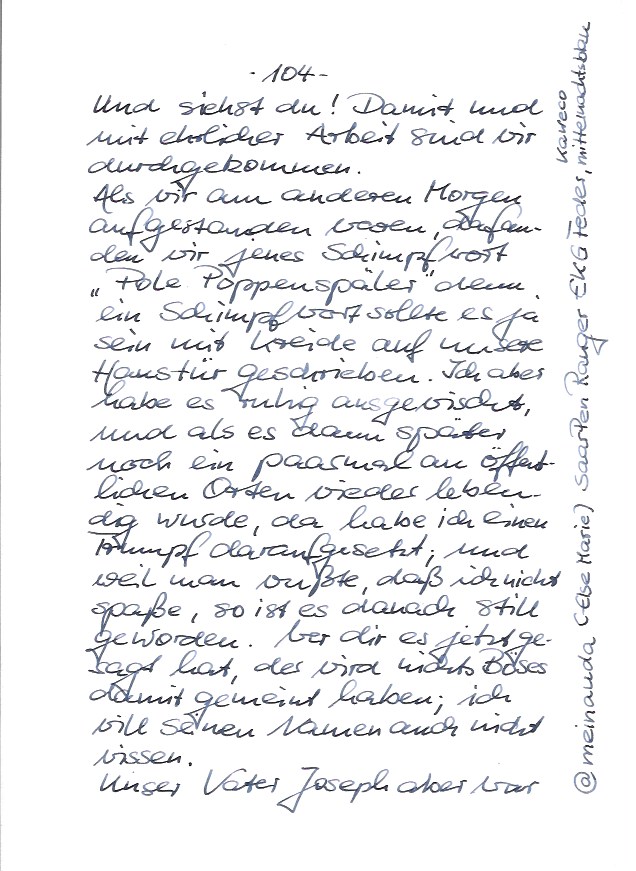 - 104 -
Und siehst du! Damit und
mit ehrlicher Arbeit sind wir
durchgekommen.
Als wir am anderen Morgen
aufgestanden waren, da fan-
den wir jenes Schimpfwort
„Pole Poppenspäler" denn
ein Schimpfwort sollte es ja
sein mit Kreide auf unsere
Haustür geschrieben. Ich aber
habe es ruhig ausgewischt,
und als es dann später
noch ein paarmal an öffent-
lichen Orten wieder leben-
dig wurde, da habe ich einen
Trumpf daraufgesetzt; und
weil man wußte, daß ich nicht
spaße, so ist es danach still
geworden. Wer dir es jetzt ge-
sagt hat, der wird nichts Böses
damit gemeint haben; ich
will seinen Namen auch nicht
wissen.
Unser Vater Joseph aber war
@meinauda (Else Marie) SaarPen Ranger EKG Feder, Kaweco mitternachtsblau